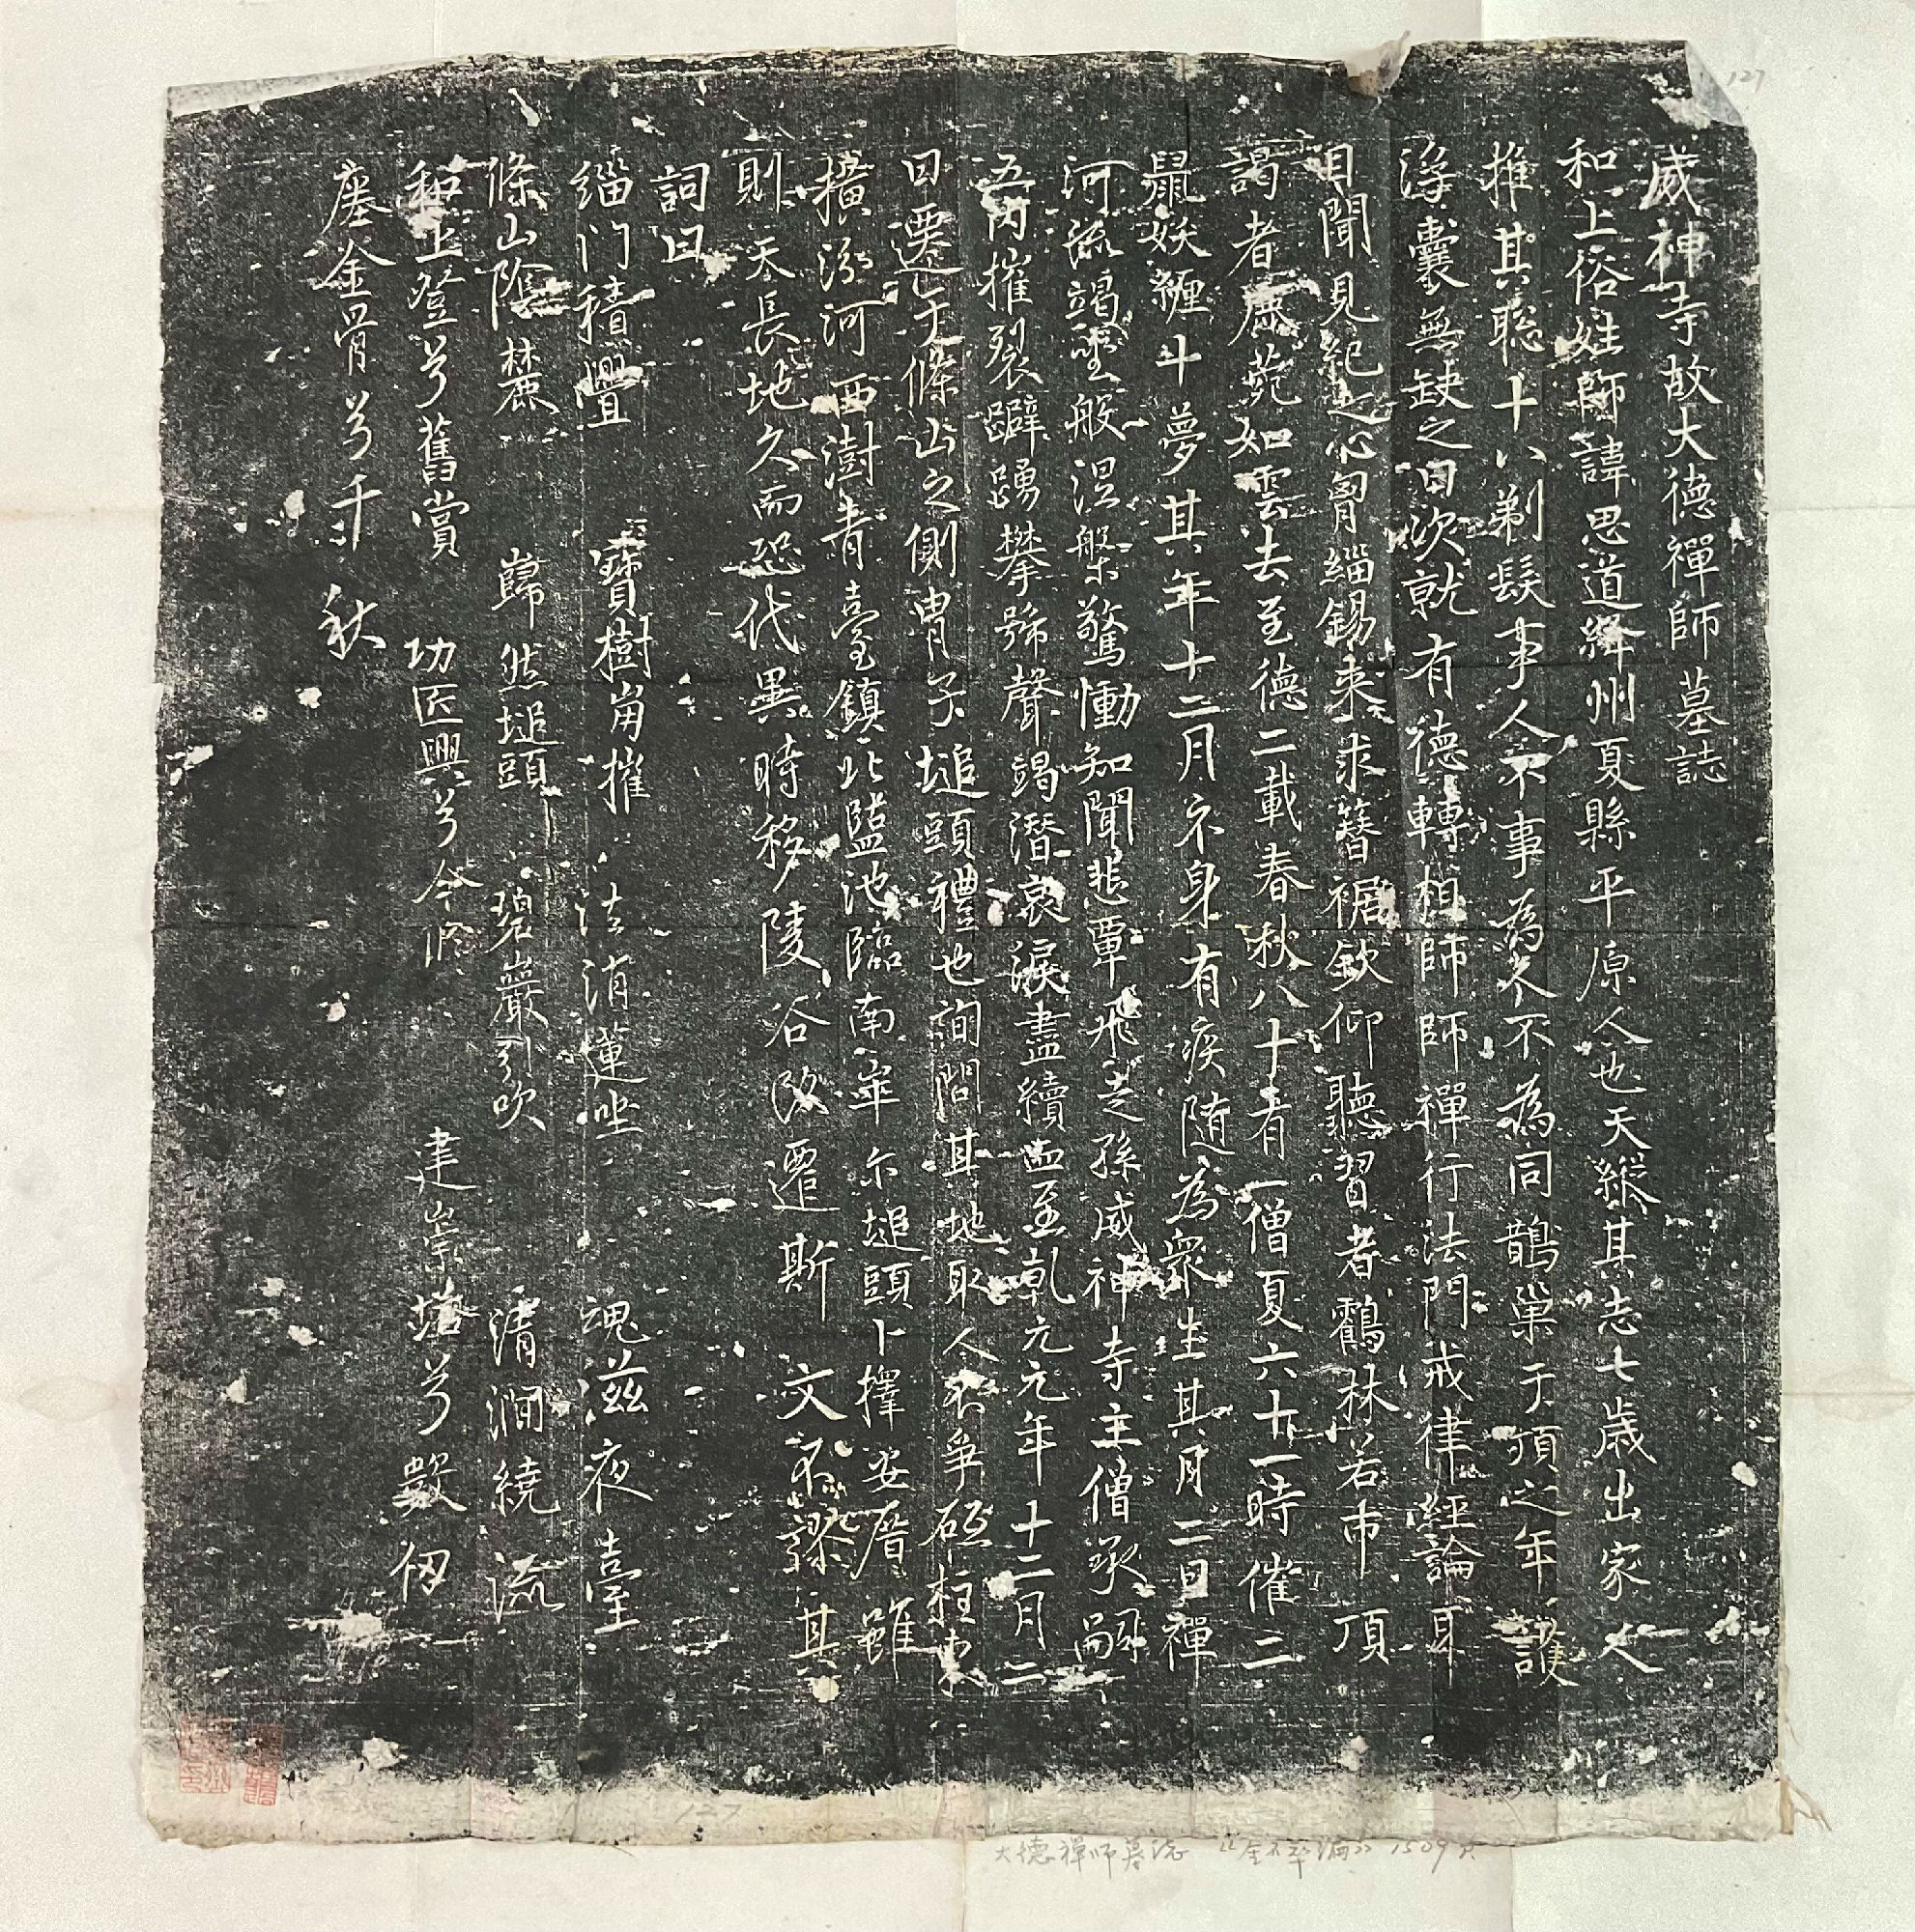 威神寺故大德禪師墓誌
和上俗姓師諱思道絳州夏縣平原人也天縱其志七歲出家人
推其聡十八剃髮事人不事為人不為同鵲巢于頂之年護
浮囊無缺之日次就有德轉相師師禪行法門戒律經論耳
目聞見紀之心胷緇錫来求簪裾欽仰聽習者鸖林若市頂
謁者鹿菀如雲去至德二載春秋八十有一僧夏六十一時催二
鼠妖纏斗夢其年十二月示身有疾随為衆生其月二日禪
河流竭坐般涅槃驚慟知聞悲覃飛走孫威神寺主僧承嗣
五內摧裂躃踴攀號聲竭潛哀淚盡續血至乹元元年十二月二
日遷于條山之側胄子塠頭禮也詢問其地取人不爭砥柱東
橫沠河西澍青臺鎮北塩池臨南岸尒塠頭卜擇安厝雖
則天長地久而恐代異時移陵谷改遷斯文不謬其
詞曰
緇門積舋 寶樹崩摧 法消蓮坐 魂滋夜臺
條山陰麓 巋然塠頭 碧巖引吹 清澗繞流
和上登兮舊賞 功匠興兮令脩 建崇塔兮數仭
塵金骨兮千秋
127
127
大德禪師墓誌 《金石萃編》 1509頁